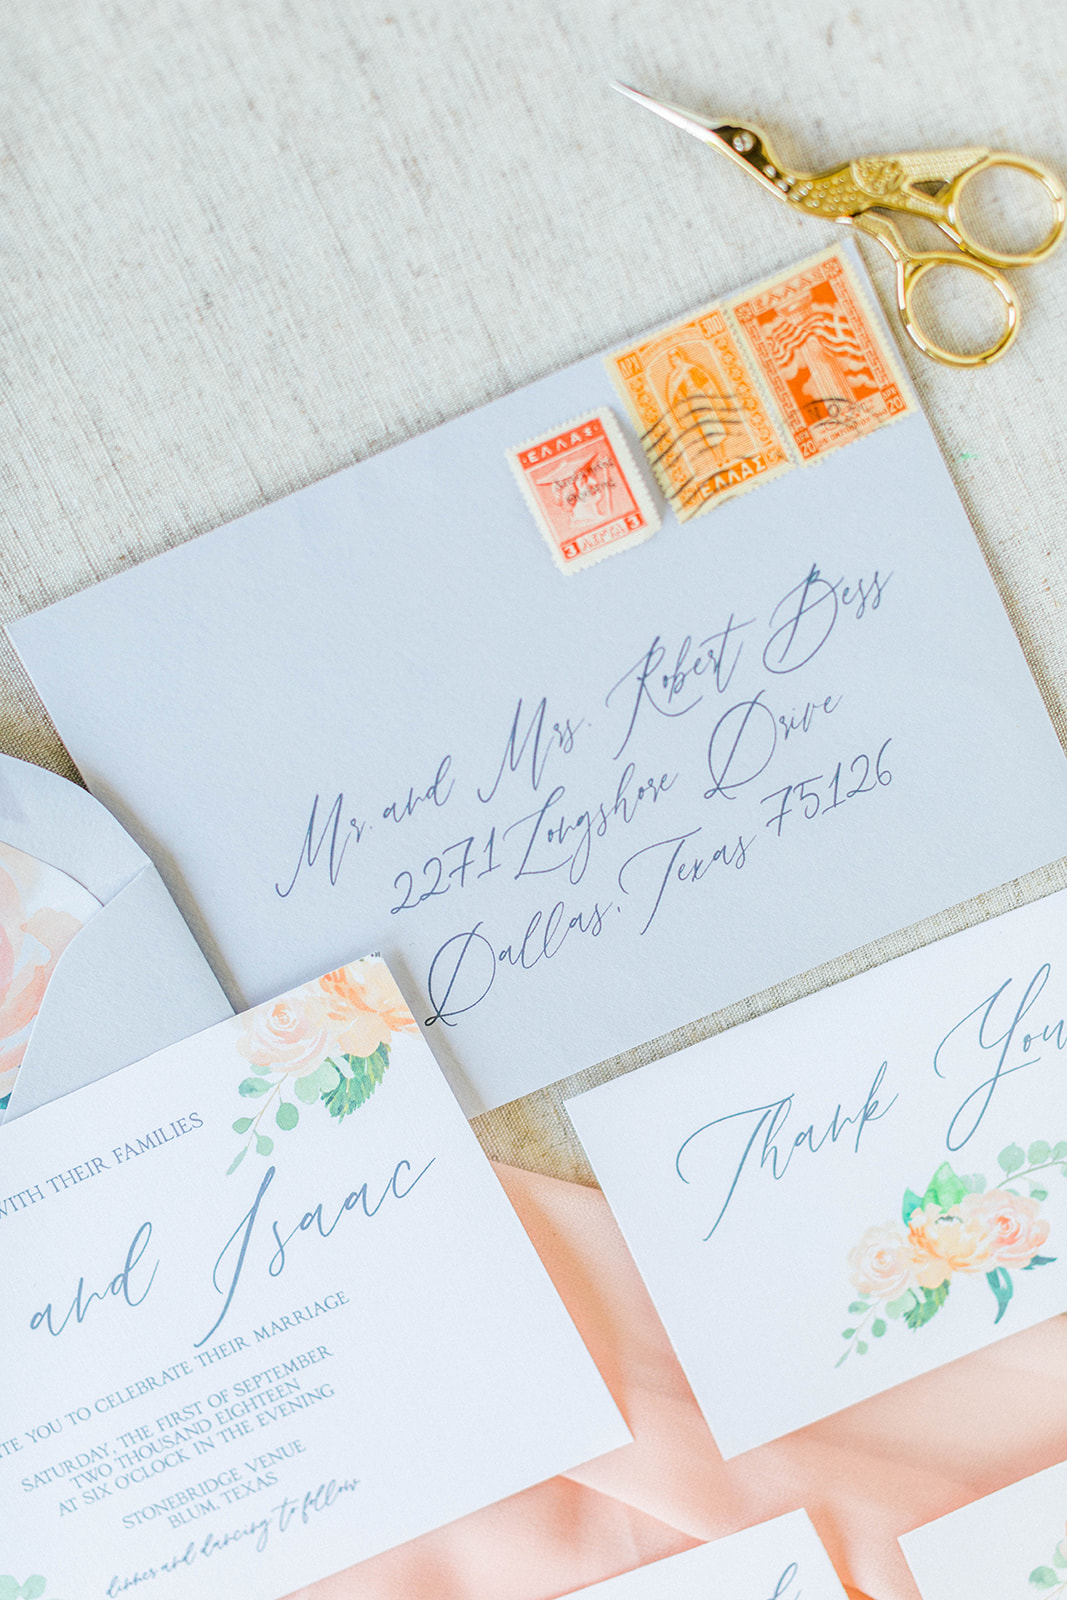 ΕΛΛΑΣ
3 ΛΕΠΤΑ 3
ΔΡΧ
ΕΛΛΑΣ
ΕΛΛΑΣ
ΔΡ. 20
ΔΡΧ 20
Mr. and Mrs. Robert Bess
2271 Longshore Drive
Dallas, Texas 75126
WITH THEIR FAMILIES
and Isaac
YOU TO CELEBRATE THEIR MARRIAGE
SATURDAY, THE FIRST OF SEPTEMBER
TWO THOUSAND EIGHTEEN
AT SIX O'CLOCK IN THE EVENING
STONEBRIDGE VENUE
BLUM, TEXAS
dinner and dancing to follow
Thank You